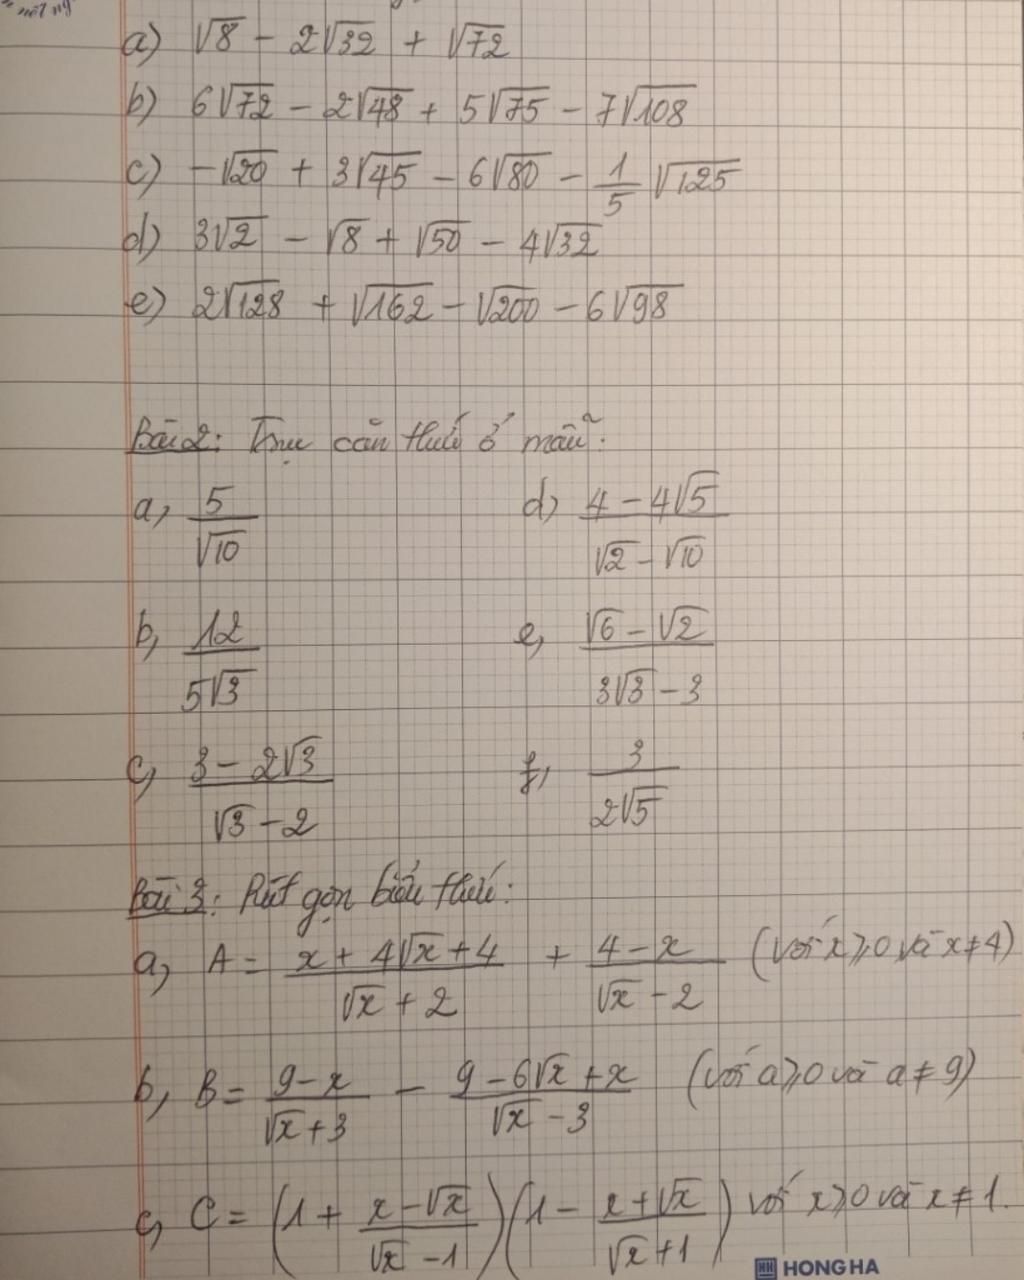 a) √8 - 2√32 + √72
b) 6√72 - 2√48 + 5√75 - 7√108
c) -√20 + 3√45 - 6√80 - 1/5 √125
d) 3√2 - √8 + √50 - 4√32
e) 2√128 + √162 - √200 - 6√98
Bài 2: Trục căn thức ở mẫu:
a, 5/√10 d) (4 - 4√5)/(√2 - √10)
b, 12/(5√3) e, (√6 - √2)/(3√3 - 3)
c, (3 - 2√3)/(√3 - 2) f, 3/(2√5)
Bài 3: Rút gọn biểu thức:
a, A = (x + 4√x + 4)/(√x + 2) + (4 - x)/(√x - 2) (với x ⩾ 0 và x ≠ 4)
b, B = (9 - x)/(√x + 3) - (9 - 6√x + x)/(√x - 3) (với a ⩾ 0 và a ≠ 9)
c, C = (1 + (x - √x)/(√x - 1))(1 - (x + √x)/(√x + 1)) với x ⩾ 0 và x ≠ 1.
HONG HA